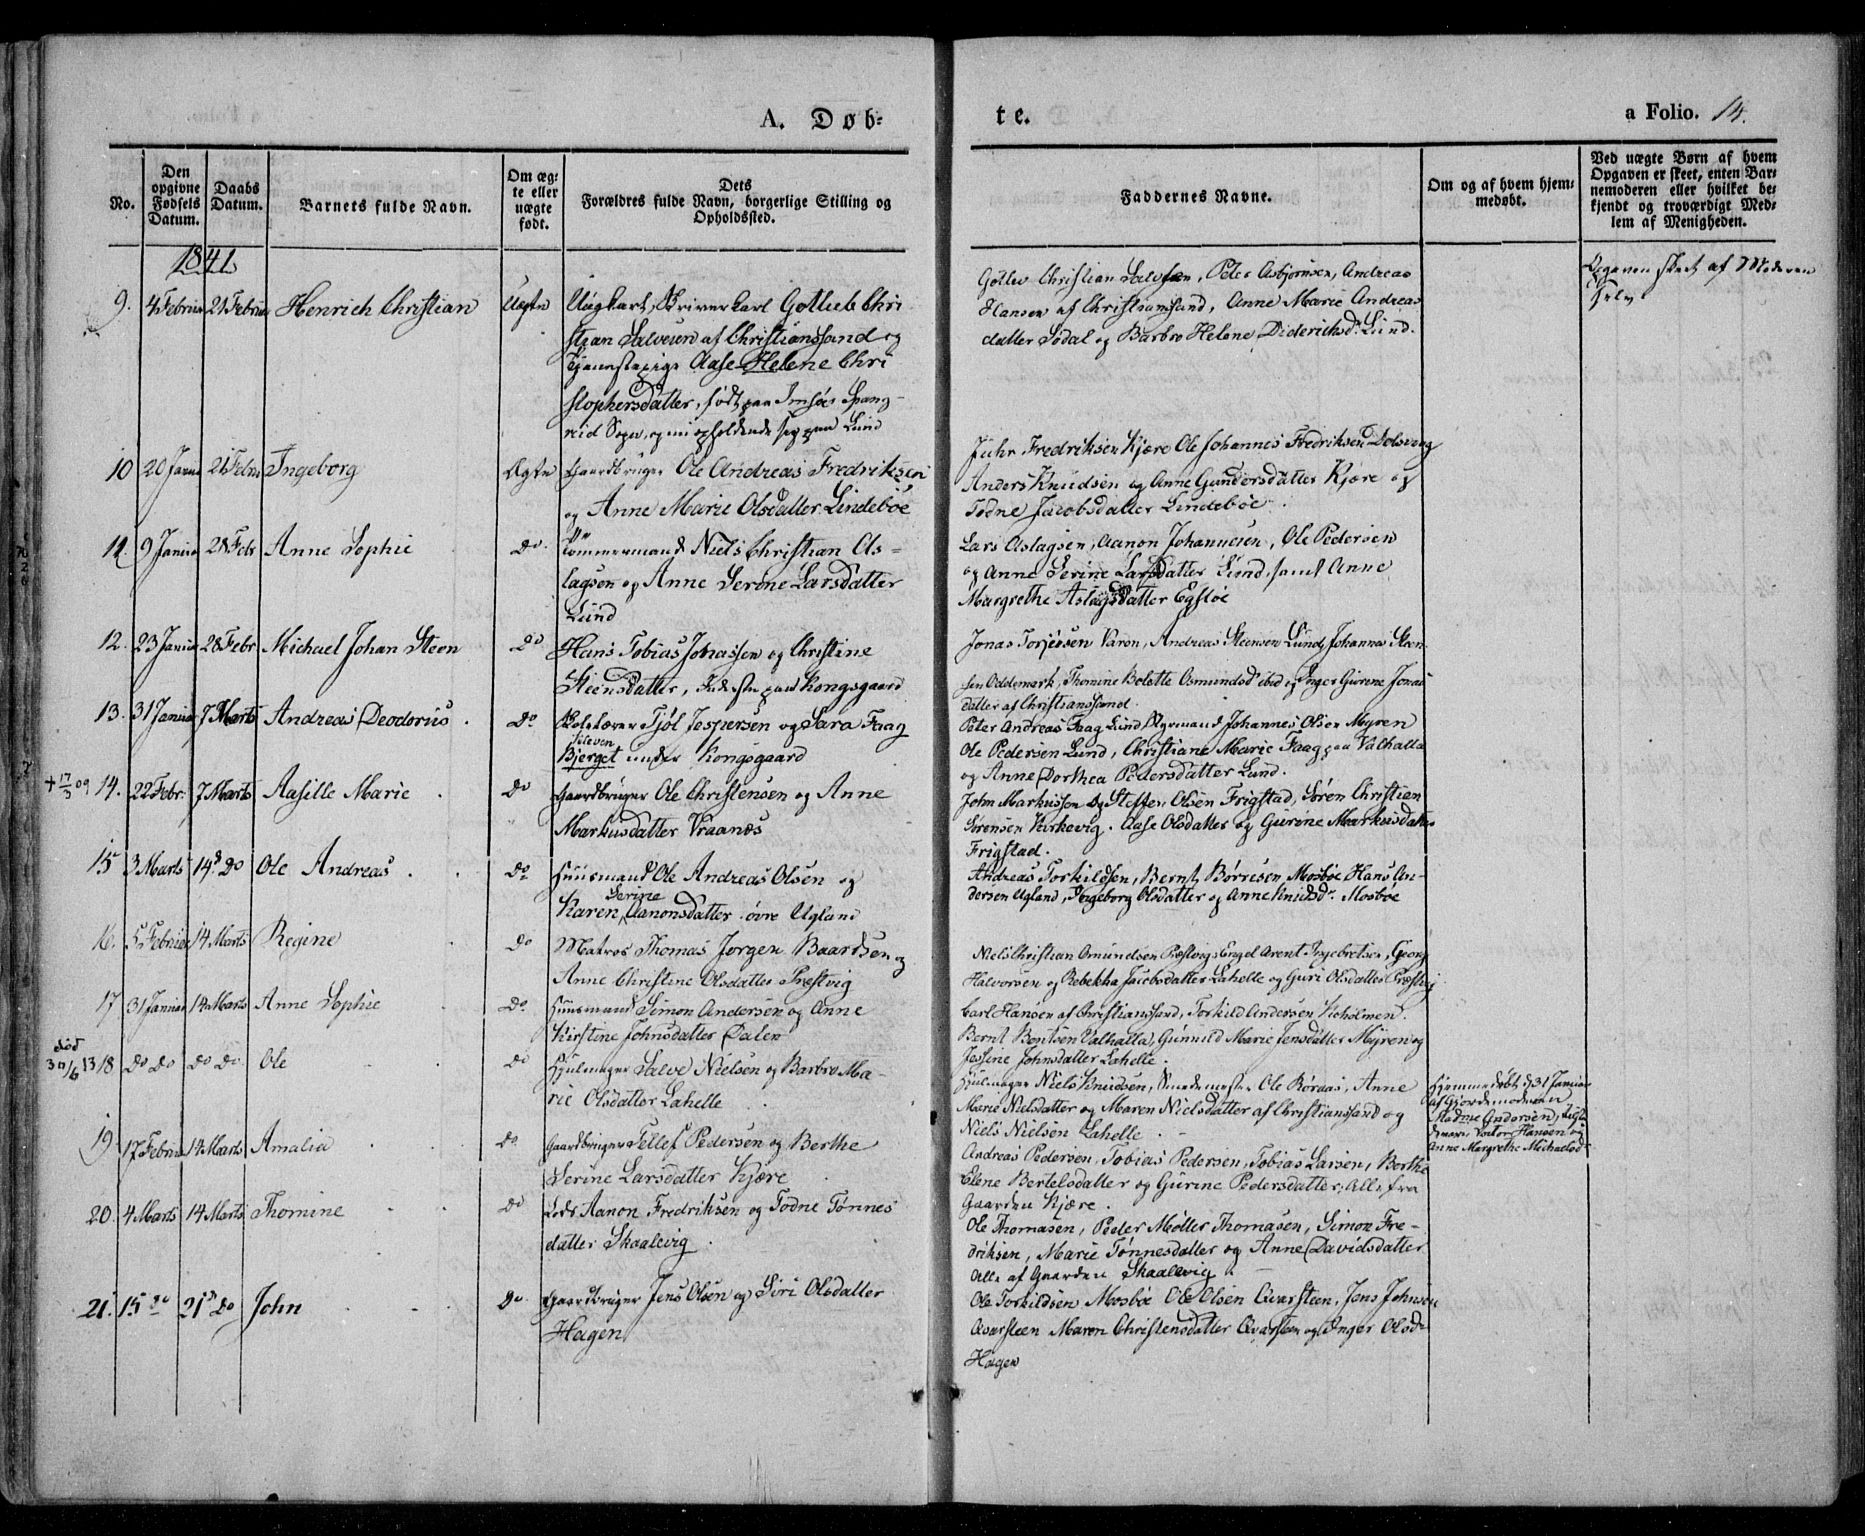 A. Døb-
te.
a Folio. 14.
No.
Den opgivne Fødsels Datum.
Daabs Datum.
Barnets fulde Navn.
Om ægte eller uægte født.
Dets Forældres fulde Navn, borgerlige Stilling og Opholdssted.
Faddernes Navne.
Om og af hvem hjemmedøbt.
Ved uægte Børn af hvem Opgaven er skeet, enten Barnemoderen eller hvilket bekjendt og troværdigt Medlem af Menigheden.
1841
9. 4 Februar 21 Februar Henrich Christian Uægte
Ungkarl, Skriver Carl Gotlieb Chri
stian Salvesen af Christianssand og
Tjenestepige Aase Helene Chri
stophersdatter, født paa
Sogn, og nu opholdende sig paa Lund
Christian Salvesen, Peter Asbjørnsen, Andreas
Hansen af Christianssand, Anne Marie Andreas
datter Sødal og Barbro Helene Dideriksd: Lund.
Opgaven skeet af Moderen
selv
10 20 Janua 21 Febru Ingeborg Ægte
Gaardbruger Ole Andreas Fredriksen
og Anne Marie Olsdatter Lindebøe
Fredriksen Kjære Ole Johannes Fredriksen Dolsveig
Anders Knudsen og Anne Gundersdatter Kjære og
Todne Jacobsdatter Lindebøe
11 9 Januar 28 Febr Anne Sophie Do.
Tømmermand Niels Christian As-
lagsen og Anne Serine Larsdatter
Lund
Lars Aslagsen, Aanon Johannesen, Ole Pedersen
og Anne Serine Larsdatter Lund, samt Anne
Margrethe Aslagsdatter Egsløe
12. 23 Januar 28 Febr. Michael Johan Steen Do
Hans Tobias Jonassen og Christine
Steensdatter, Inderste paa Kongsgaard
Jonas Torjersen Varen, Andreas Steensen Lund, Johannes Steen-
sen Oddemark, Thomine Bolette Osmundsd ibid og Inger Gurene Jonas
datter af Christianssand.
13. 31 Januar 7 Marts Andreas Deodorus. Do
Skolelærer Tjøl Jespersen og Sara Faag
Bjerget under Kongsgaard
Peter Andreas Faag Lund Styrmand Johannes Olsen Myren
Ole Pedersen Lund, Christiane Marie Faag paa Valhalla
og Anne Dorthea Pedersdatter Lund.
+ 17/3 09 14. 22 Febr. 7 Marts Aasille Marie. Do
Gaardbruger Ole Christensen og Anne
Markusdatter Vraanes
John Markussen og Steffen Olsen Frigstad, Søren Christian
Sørensen Kirkevig. Aase Olsdatter og Gurene Markusdatter
Frigstad.
15 3 Marts 14d Do Ole Andreas Do
Huusmand Ole Andreas Olsen og
Serine
Karen Aanonsdatter. øvre Ugland
Andreas Torkildsen, Bernt Børresen Mosbøe Hans An-
dersen Ugland, Ingeborg Olsdatter og Anne Knudsd: Mosbøe
16. 5 Februar 14 Marts Regine Do
Matros Thomas Jørgen Baardsen og
Anne Christine Olsdatter Præstvig
Niels Christian Omundsen Præstvig, Engel Arent Ingebretsen, Georg
Halvorsen og Rebekka Jacobsdatter Lahelle og Guri Olsdatter Præstvig
17 31 Januar 14 Marts Anne Sophie Do
Huusmand Simon Andersen og Anne
Kirstine Johnsdatter Dalen
Carl Hansen af Christianssand, Torkild Andersen Vigholmen.
Bernt Bentsen Valhalla, Gunnild Marie Jensdatter Myren og
Jessine Johnsdatter Lahelle.
død
18 Do Do Do Do Ole Do
Hjulmager Salve Nielsen og Barbro Ma-
rie Olsdatter Lahelle
Hjulmager Niels Knudsen, Smedemester Ole Røraas, Anne
Marie Nielsdatter og Maren Nielsdatter af Christianssand og
Niels Nielsen Lahelle.
Hjemmedøbt d 31 Januar
af Gjordemoderen
Andersen,
Hansen og
Anne Margrethe Michaelsd
19 17 Februar 14 Marts Amalia Do.
Gaardbruger Tellef Pedersen og Berthe
Serine Larsdatter Kjære
Andreas Pedersen, Tobias Pedersen, Tobias Larsen, Berthe
Elene Bertelsdatter og Gurine Pedersdatter, Alle fra
Gaarden Kjære.
20. 4 Marts 14 Marts Thomine Do
Lods Aanon Fredriksen og Todne Tønnes
datter Skaalevig.
Ole Thomasen, Peder Møller Thomasen, Simon Fre-
driksen, Marie Tønnesdatter og Anne Davidsdatter
Alle af Gaarden Skaalevig
21. 15 do 21d Do John Do.
Gaardbruger Jens Olsen og Siri Olsdatter
Hagen
Ole Torkildsen Mosbøe Ole Olsen Qvarsteen, Jens Johnsen
Qvarsteen Maren Christensdatter Qvarsteen og Inger Olsd:
Hagen